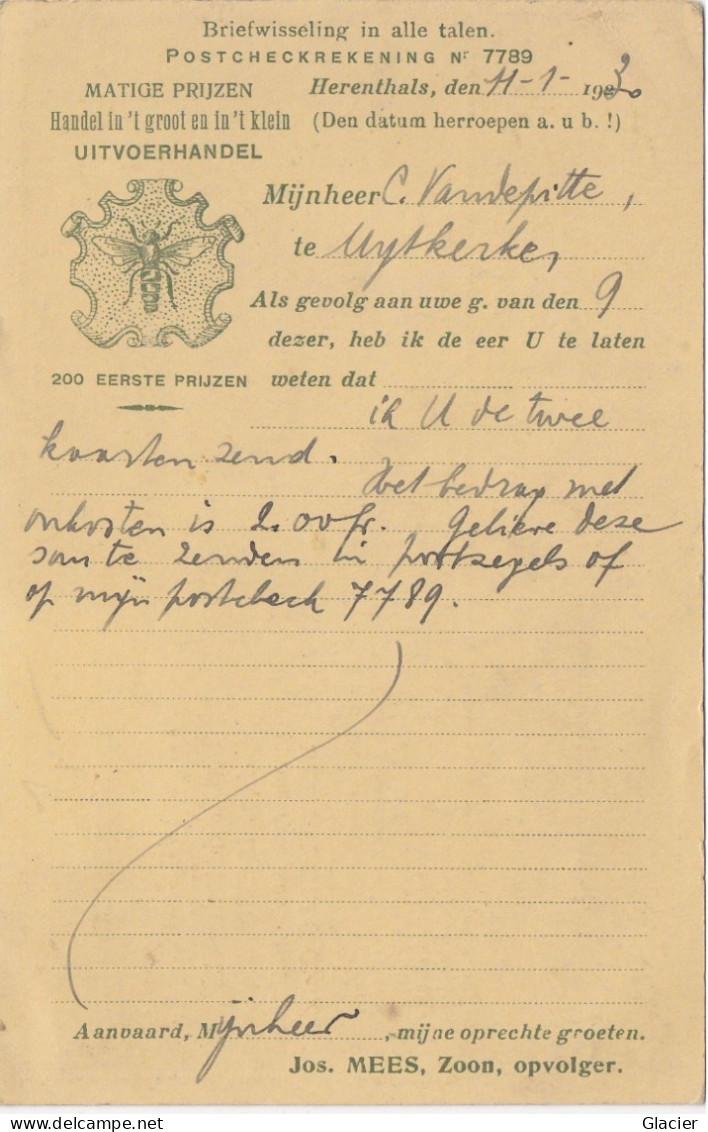 Briefwisseling in alle talen.
POSTCHECKREKENING Nr 7789
MATIGE PRIJZEN
Handel in 't groot en in 't klein
UITVOERHANDEL
Herenthals, den 11-1-1930
(Den datum herroepen a. u b. !)
Mijnheer C. Vandepitte,
te Uytkerke,
Als gevolg aan uwe g. van den 9
dezer, heb ik de eer U te laten
200 EERSTE PRIJZEN
weten dat
ik U de twee
kaarten zend.
Het bedrag met
onkosten is 2.00 fr. Gelieve deze
som te zenden in postzegels of
op mijn postcheck 7789.
Aanvaard, Mijnheer, mijne oprechte groeten.
Jos. MEES, Zoon, opvolger.
Glacier